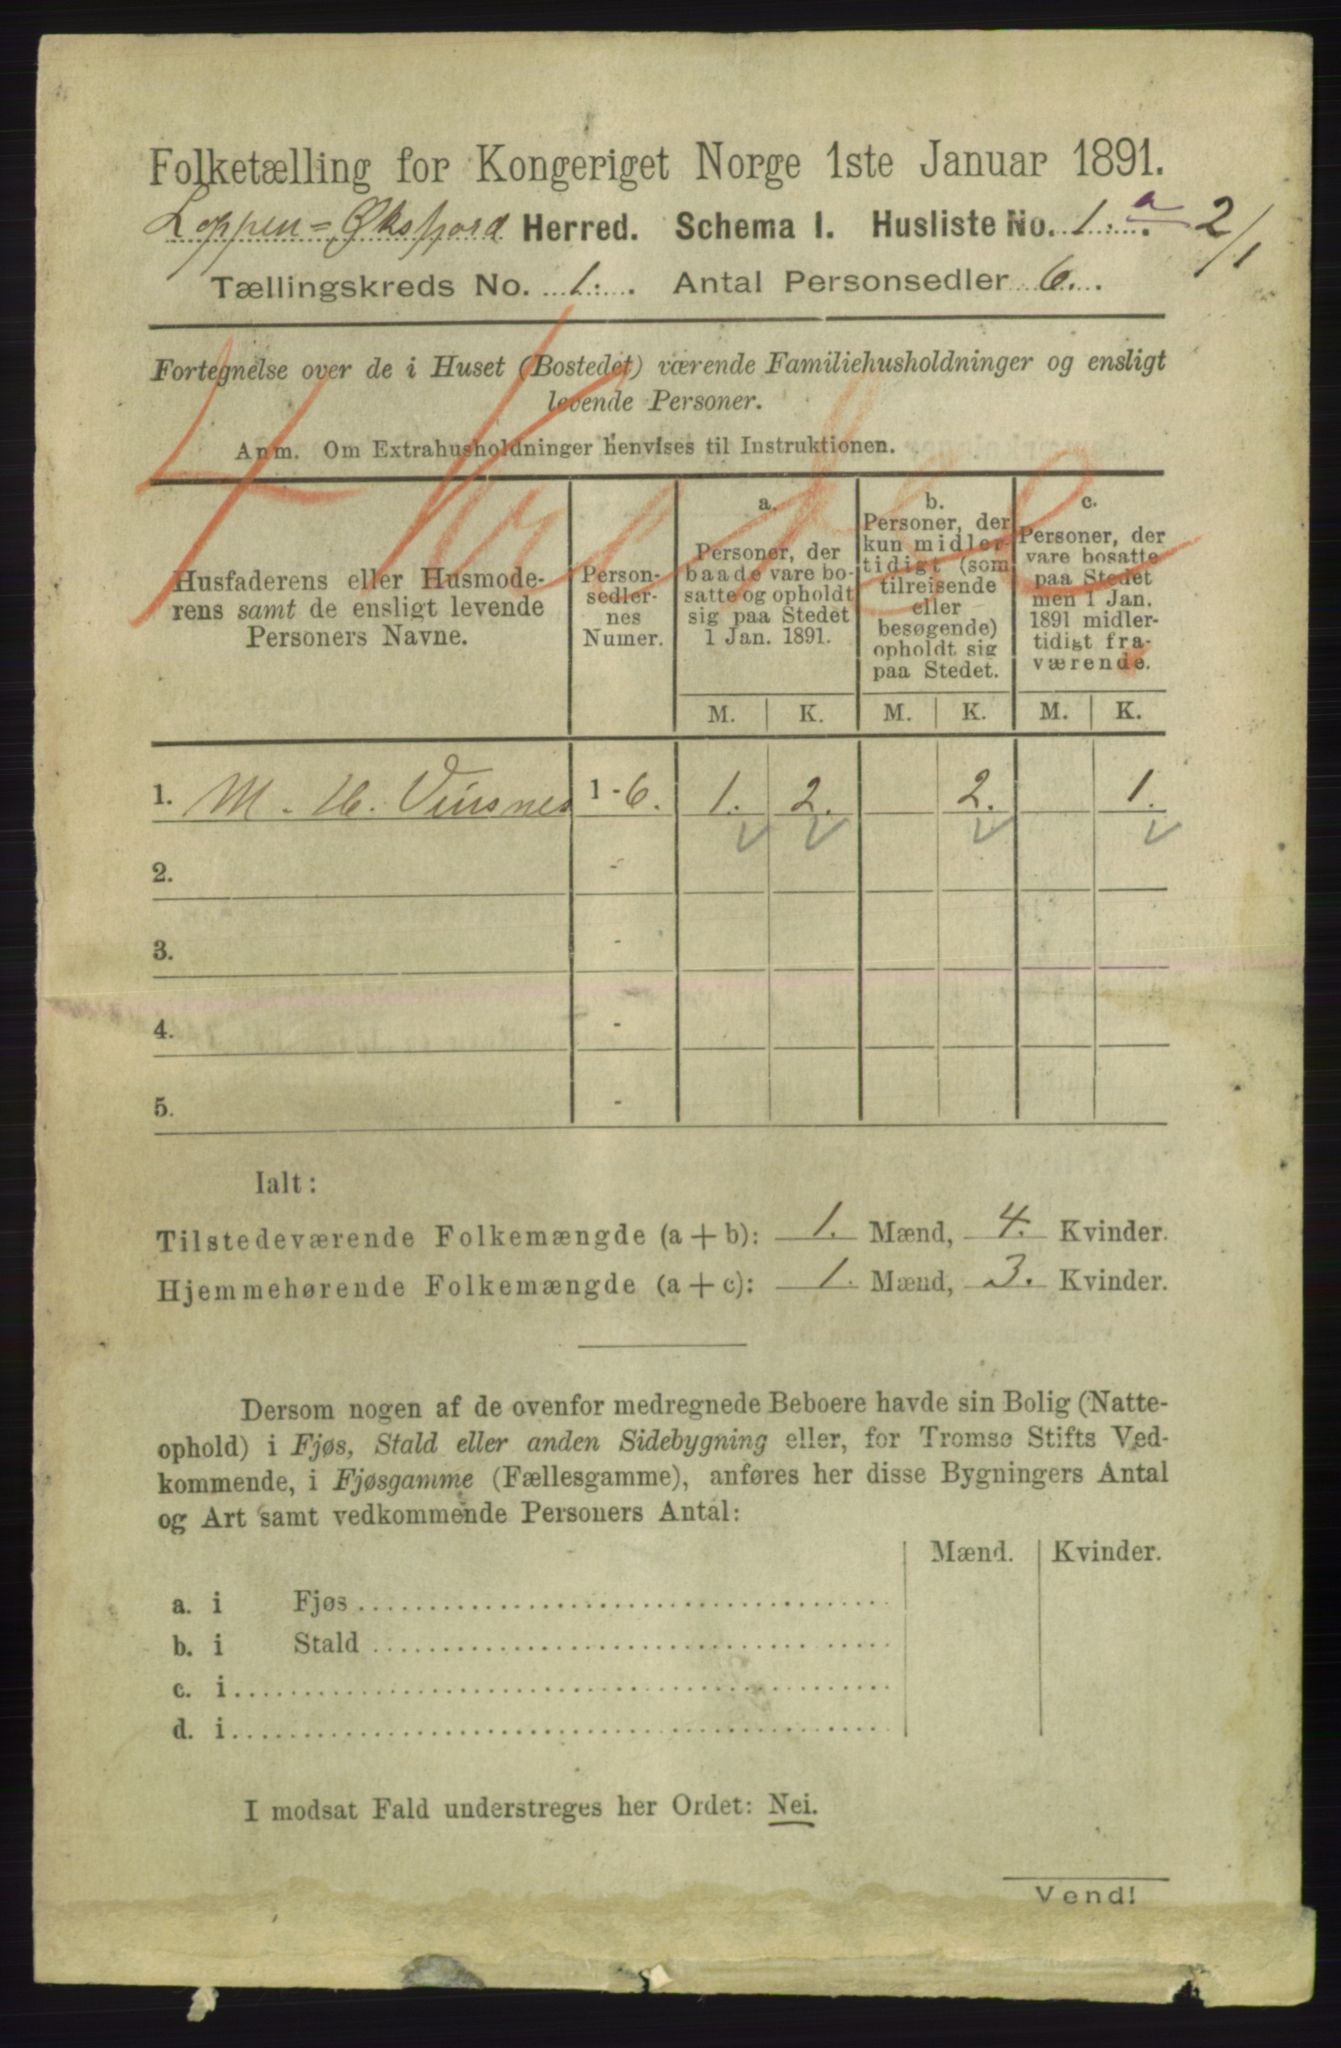 Folketælling for Kongeriget Norge 1ste Januar 1891.
Loppen = Øksfjord Herred. Schema I. Husliste No. 1. a 2/1
Tællingskreds No. 1. Antal Personsedler 6.
Fortegnelse over de i Huset (Bostedet) værende Familiehusholdninger og ensligt
levende Personer.
Anm. Om Extrahusholdninger henvises til Instruktionen.
Husfaderens eller Husmode-
rens samt de ensligt levende
Personers Navne.
Person-
sedler-
nes
Numer.
a.
Personer, der
baade vare bo-
satte og opholdt
sig paa Stedet
1 Jan. 1891.
b.
Personer, der
kun midler-
tidigt (som
tilreisende
eller
besøgende)
opholdt sig
paa Stedet.
c.
Personer, der
vare bosatte
paa Stedet
men 1 Jan.
1891 midler-
tidigt fra-
værende.
M. K. M. K. M. K.
1. M. H. 1-6. 1. 2. 2. 1.
2. -
3. -
4. -
5. -
Ialt:
Tilstedeværende Folkemængde (a + b): 1. Mænd, 4. Kvinder.
Hjemmehørende Folkemængde (a + c): 1. Mænd, 3. Kvinder.
Dersom nogen af de ovenfor medregnede Beboere havde sin Bolig (Natte-
ophold) i Fjøs, Stald eller anden Sidebygning eller, for Tromsø Stifts Ved-
kommende, i Fjøsgamme (Fællesgamme), anføres her disse Bygningers Antal
og Art samt vedkommende Personers Antal:
Mænd. Kvinder.
a. i Fjøs
b. i Stald
c. i
d. i
I modsat Fald understreges her Ordet: Nei.
Vend!